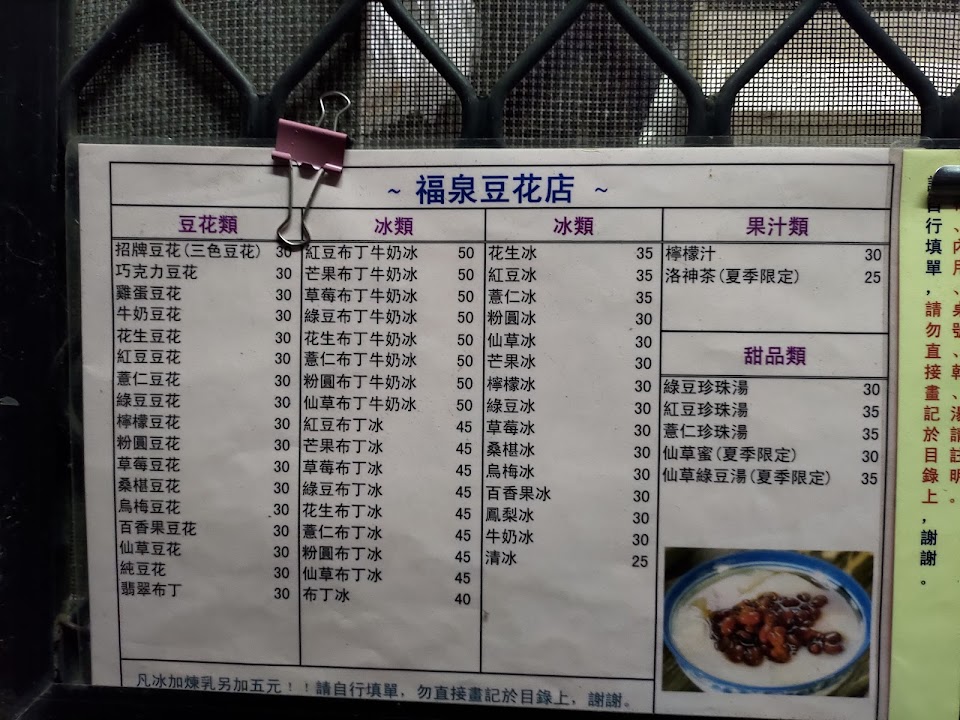 ~ 福泉豆花店 ~
豆花類
招牌豆花(三色豆花) 30
巧克力豆花 30
雞蛋豆花 30
牛奶豆花 30
花生豆花 30
紅豆豆花 30
薏仁豆花 30
綠豆豆花 30
檸檬豆花 30
粉圓豆花 30
草莓豆花 30
桑椹豆花 30
烏梅豆花 30
百香果豆花 30
仙草豆花 30
純豆花 30
翡翠布丁 30
冰類
紅豆布丁牛奶冰 50
芒果布丁牛奶冰 50
草莓布丁牛奶冰 50
綠豆布丁牛奶冰 50
花生布丁牛奶冰 50
薏仁布丁牛奶冰 50
粉圓布丁牛奶冰 50
仙草布丁牛奶冰 50
紅豆布丁冰 45
芒果布丁冰 45
草莓布丁冰 45
綠豆布丁冰 45
花生布丁冰 45
薏仁布丁冰 45
粉圓布丁冰 45
仙草布丁冰 45
布丁冰 40
冰類
花生冰 35
紅豆冰 35
薏仁冰 35
粉圓冰 30
仙草冰 30
芒果冰 30
檸檬冰 30
綠豆冰 30
草莓冰 30
桑椹冰 30
烏梅冰 30
百香果冰 30
鳳梨冰 30
牛奶冰 30
清冰 25
果汁類
檸檬汁 30
洛神茶(夏季限定) 25
甜品類
綠豆珍珠湯 30
紅豆珍珠湯 35
薏仁珍珠湯 35
仙草蜜(夏季限定) 30
仙草綠豆湯(夏季限定) 35
凡冰加煉乳另加五元！！請自行填單，勿直接畫記於目錄上，謝謝。
、內用、桌號、乾、湯請註明。
自行填單，請勿直接畫記於目錄上，謝謝。